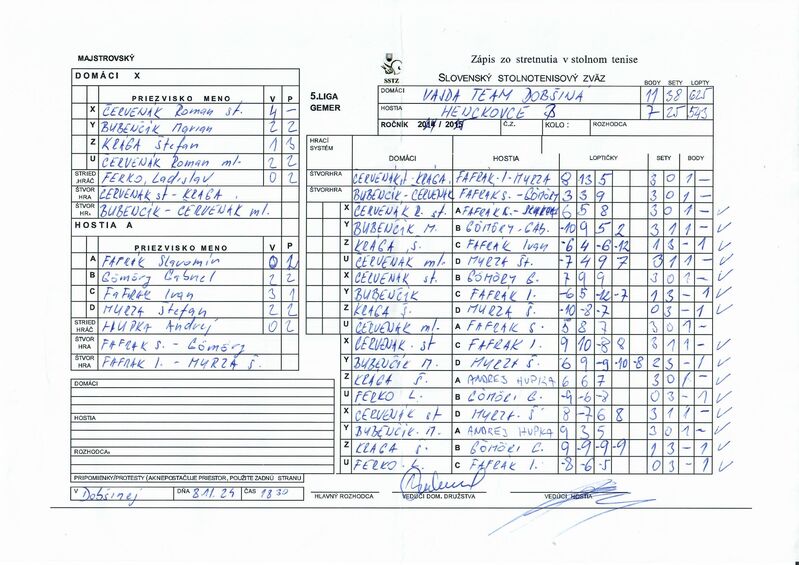 MAJSTROVSKÝ
DOMÁCI X
PRIEZVISKO MENO V P
X ČERVENÁK Roman st. 4 –
Y BUBENČÍK Marian 2 2
Z KRAGA Štefan 1 3
U ČERVENÁK Roman ml. 2 2
STRIED .HRÁČ FERKO, Ladislav 0 2
ŠTVOR HRA ČERVENÁK st - KRAGA
ŠTVOR HR. BUBENČÍK - ČERVENÁK ml.
HOSTIA A
PRIEZVISKO MENO V P
A FAFRÁK Slavomír 0 2
B Gömöry Gabriel 2 2
C FAFRÁK Ivan 3 1
D MYRZA Štefan 2 2
STRIED HRÁČ HUPKA Andrej 0 2
ŠTVOR HRA FAFRÁK S. - Gömöry
ŠTVOR HRA FAFRÁK I. - MYRZA Š.
DOMÁCI:
HOSTIA:
ROZHODCA:
PRIPOMIENKY/PROTESTY (AK NEPOSTAČUJE PRIESTOR, POUŽITE ZADNÚ STRANU
V Dobšinej DŇA 8.11.24 ČAS 18 30
SSTZ
Zápis zo stretnutia v stolnom tenise
SLOVENSKÝ STOLNOTENISOVÝ ZVÄZ
BODY SETY LOPTY
5.LIGA GEMER
DOMÁCI VAJDA TEAM DOBŠINÁ 11 38 625
HOSTIA HENCKOVCE B 7 25 543
ROČNÍK Č.Z. KOLO : ROZHODCA
HRACÍ SYSTÉM
DOMÁCI HOSTIA LOPTIČKY SETY BODY
ŠTVORHRA ČERVENÁK st - KRAGA FAFRÁK I - MYRZA 8 13 5 3 0 1 –
ŠTVORHRA BUBENČÍK - ČERVENÁK FAFRÁK S. - GÖMÖRY 3 3 9 3 0 1 –
X ČERVENÁK R. st. A FAFRÁK 6 5 8 3 0 1 –
Y BUBENČÍK M. B GÖMÖRY GAB. -10 9 5 2 3 1 1 –
Z KRAGA Š. C FAFRÁK Ivan -6 4 -6 -12 1 3 – 1
U ČERVENÁK ml. D MYRZA Št. -7 4 9 7 3 1 1 –
X ČERVENÁK st. B GÖMÖRY G. 7 9 9 3 0 1 –
Y BUBENČÍK C FAFRÁK I. -6 5 -12 -7 1 3 – 1
Z KRAGA Š. D MYRZA Š. -10 -8 -7 0 3 – 1
U ČERVENÁK ml. A FAFRÁK S. 5 8 7 3 0 1 –
X ČERVENÁK st C FAFRÁK I. 9 10 -8 8 3 1 1 –
Y BUBENČÍK M. D MYRZA Š. 6 9 -9 -10 -8 2 3 – 1
Z KRAGA Š. A ANDREJ HUPKA 6 6 7 3 0 1 –
U FERKO L. B GÖMÖRI G. -9 -6 -8 0 3 – 1
X ČERVENÁK st D MYRZA Š 8 -7 6 8 3 1 1 –
Y BUBENČÍK M. A ANDREJ HUPKA 9 3 5 3 0 1 –
Z KRAGA Š. B GÖMÖRI G. 9 -9 -9 -9 1 3 – 1
U FERKO L. C FAFRÁK I. -8 -6 -5 0 3 – 1
HLAVNÝ ROZHODCA VEDÚCI DOM. DRUŽSTVA VEDÚCI HOSTIA